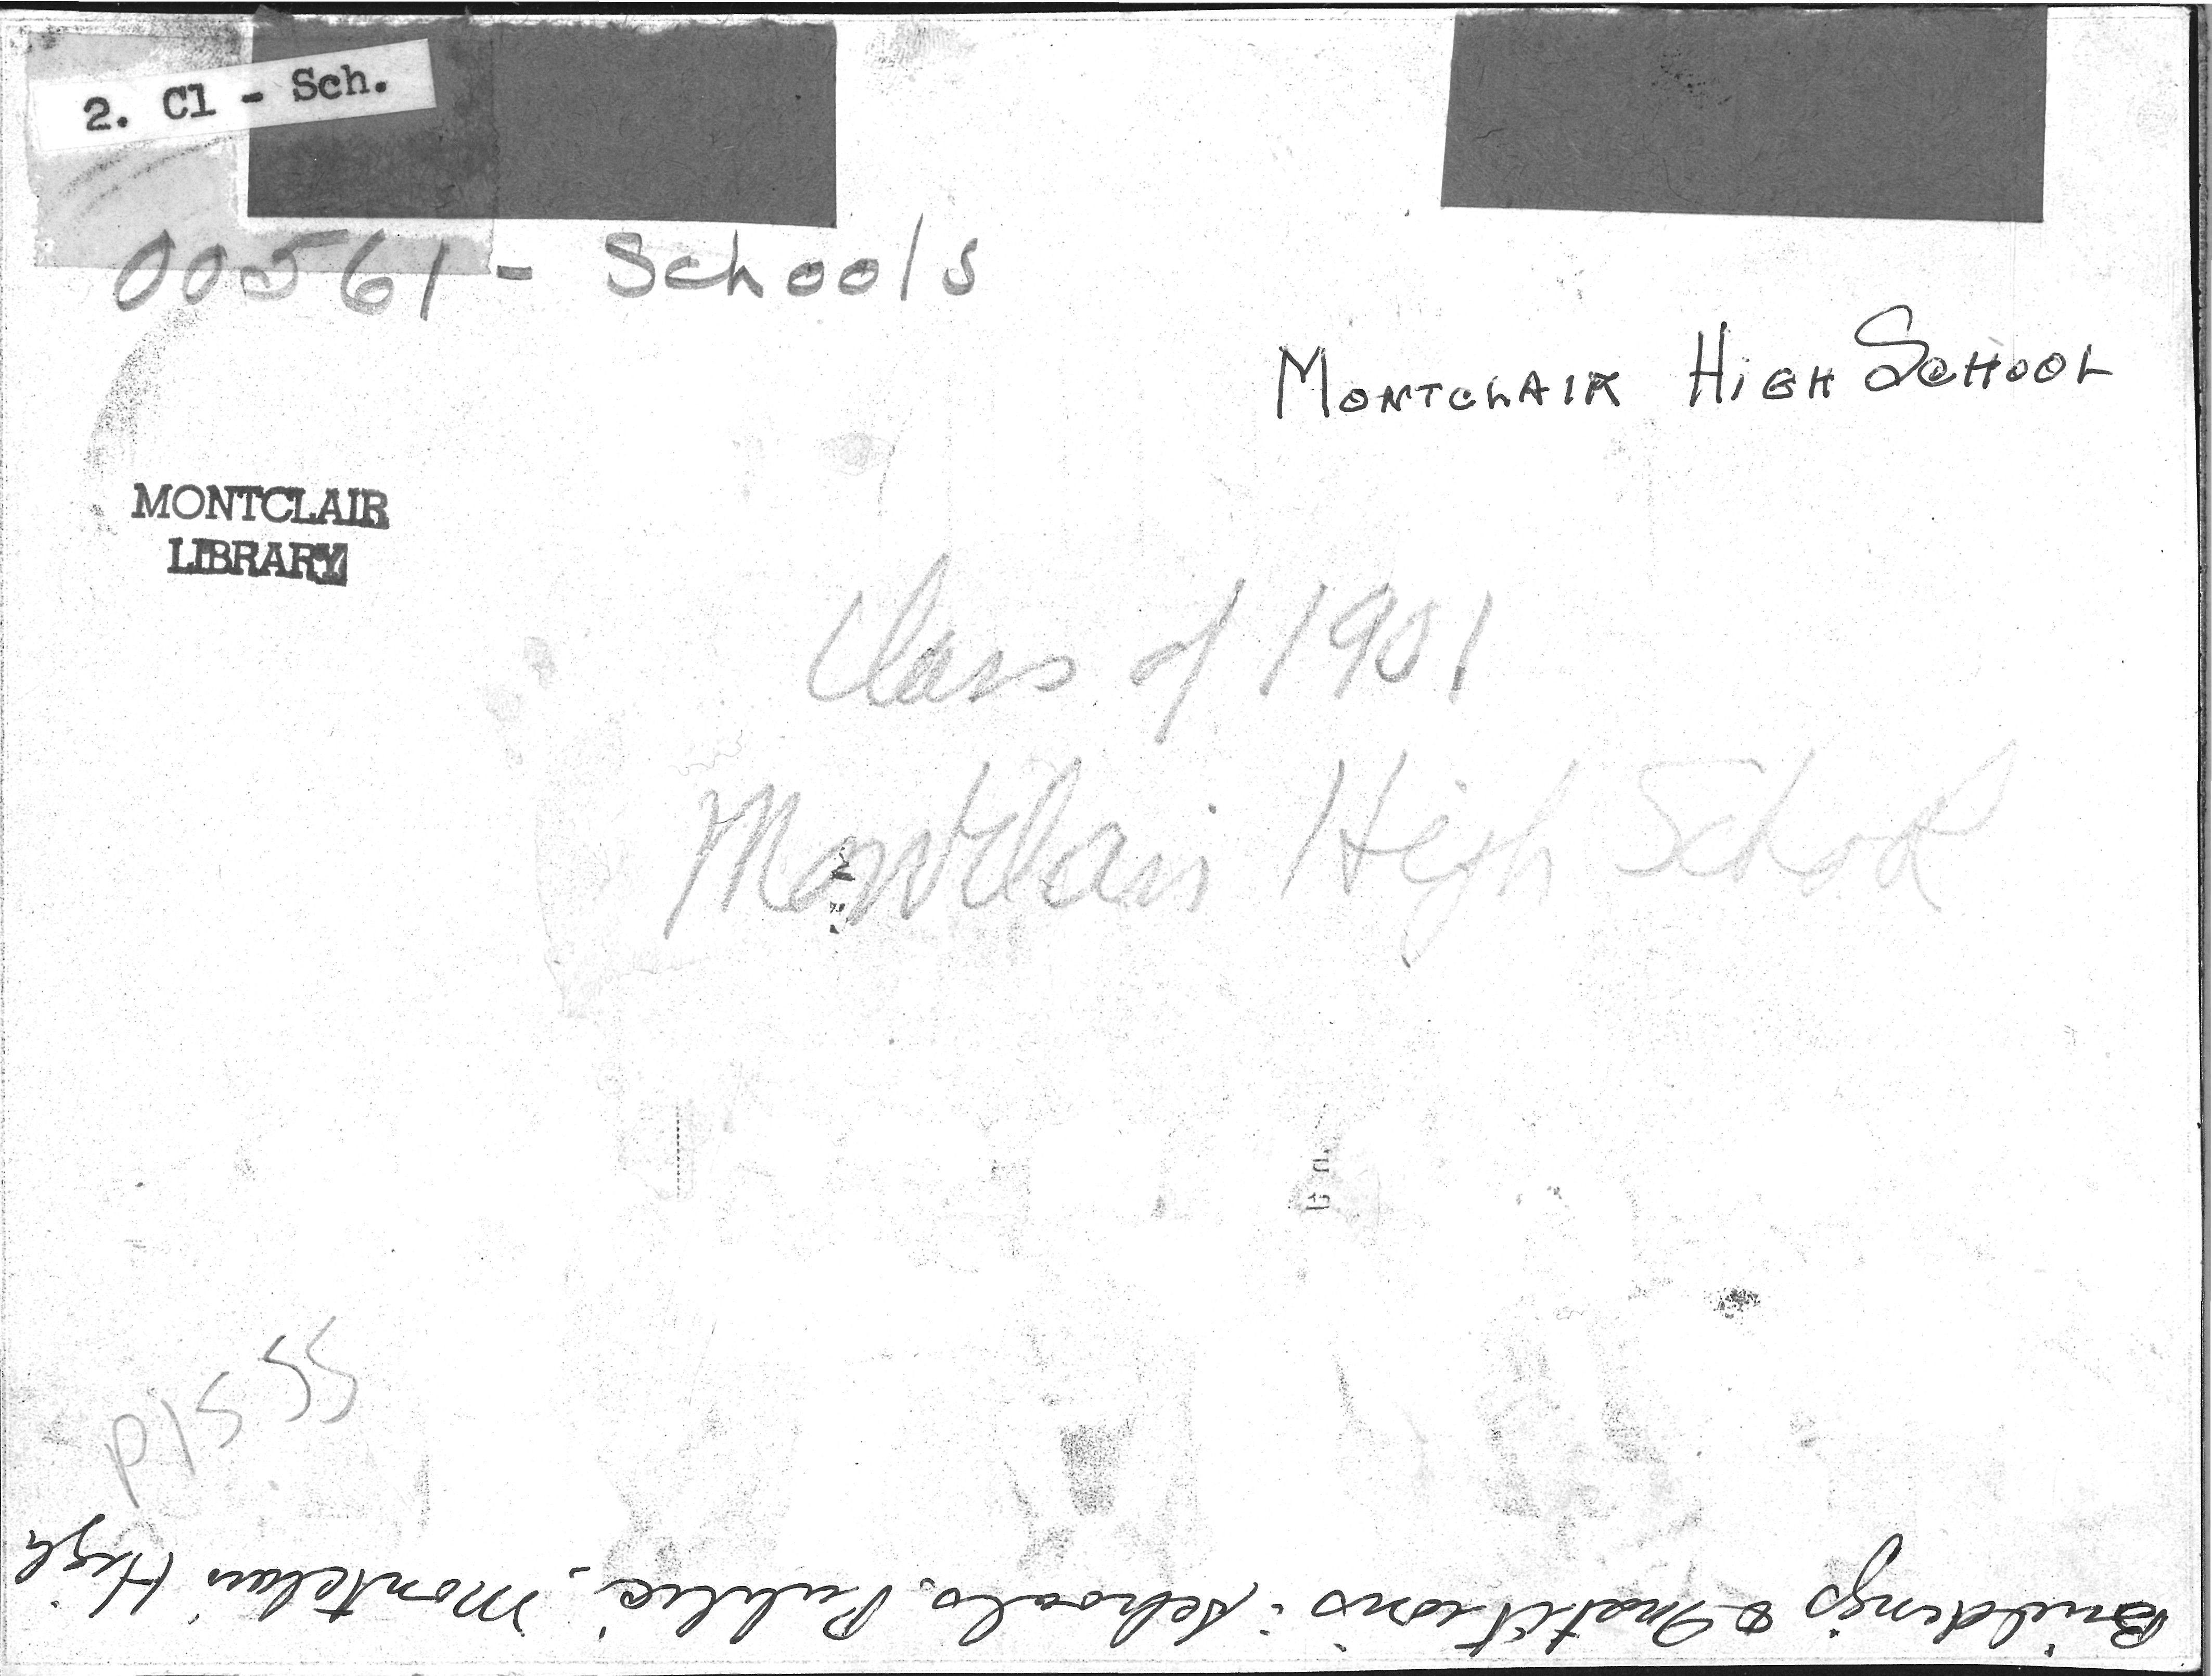 2. Cl - Sch.
00561 - Schools
MONTCLAIR HIGH SCHOOL
MONTCLAIR
LIBRARY
Class of 1901
Montclair High School
P1555
Buildings & Institutions: Schools, Public, Montclair High